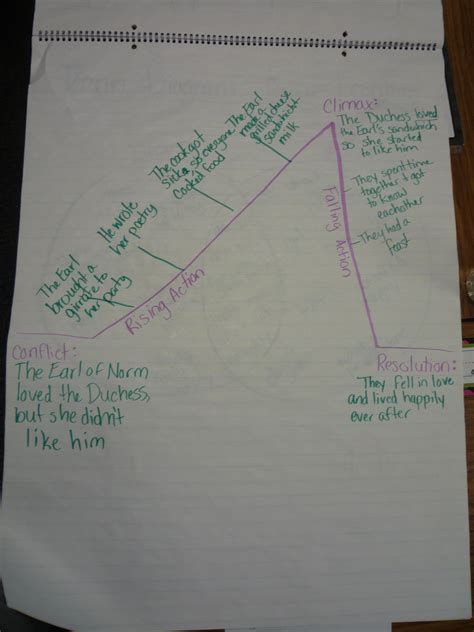 Climax:
The Duchess loved
the Earl's sandwich
so she started
to like him
The Earl
made a
grilled cheese
sandwich +
milk
The cook got
sick so everyone
cooked food
He wrote
her poetry
The Earl
brought a
girrafe to
her party
Rising Action
Falling Action
They spent time
together + got
to know
eachother
They had a
feast
Conflict:
The Earl of Norm
loved the Duchess,
but she didn't
like him
Resolution:
They fell in love
and lived happily
ever after